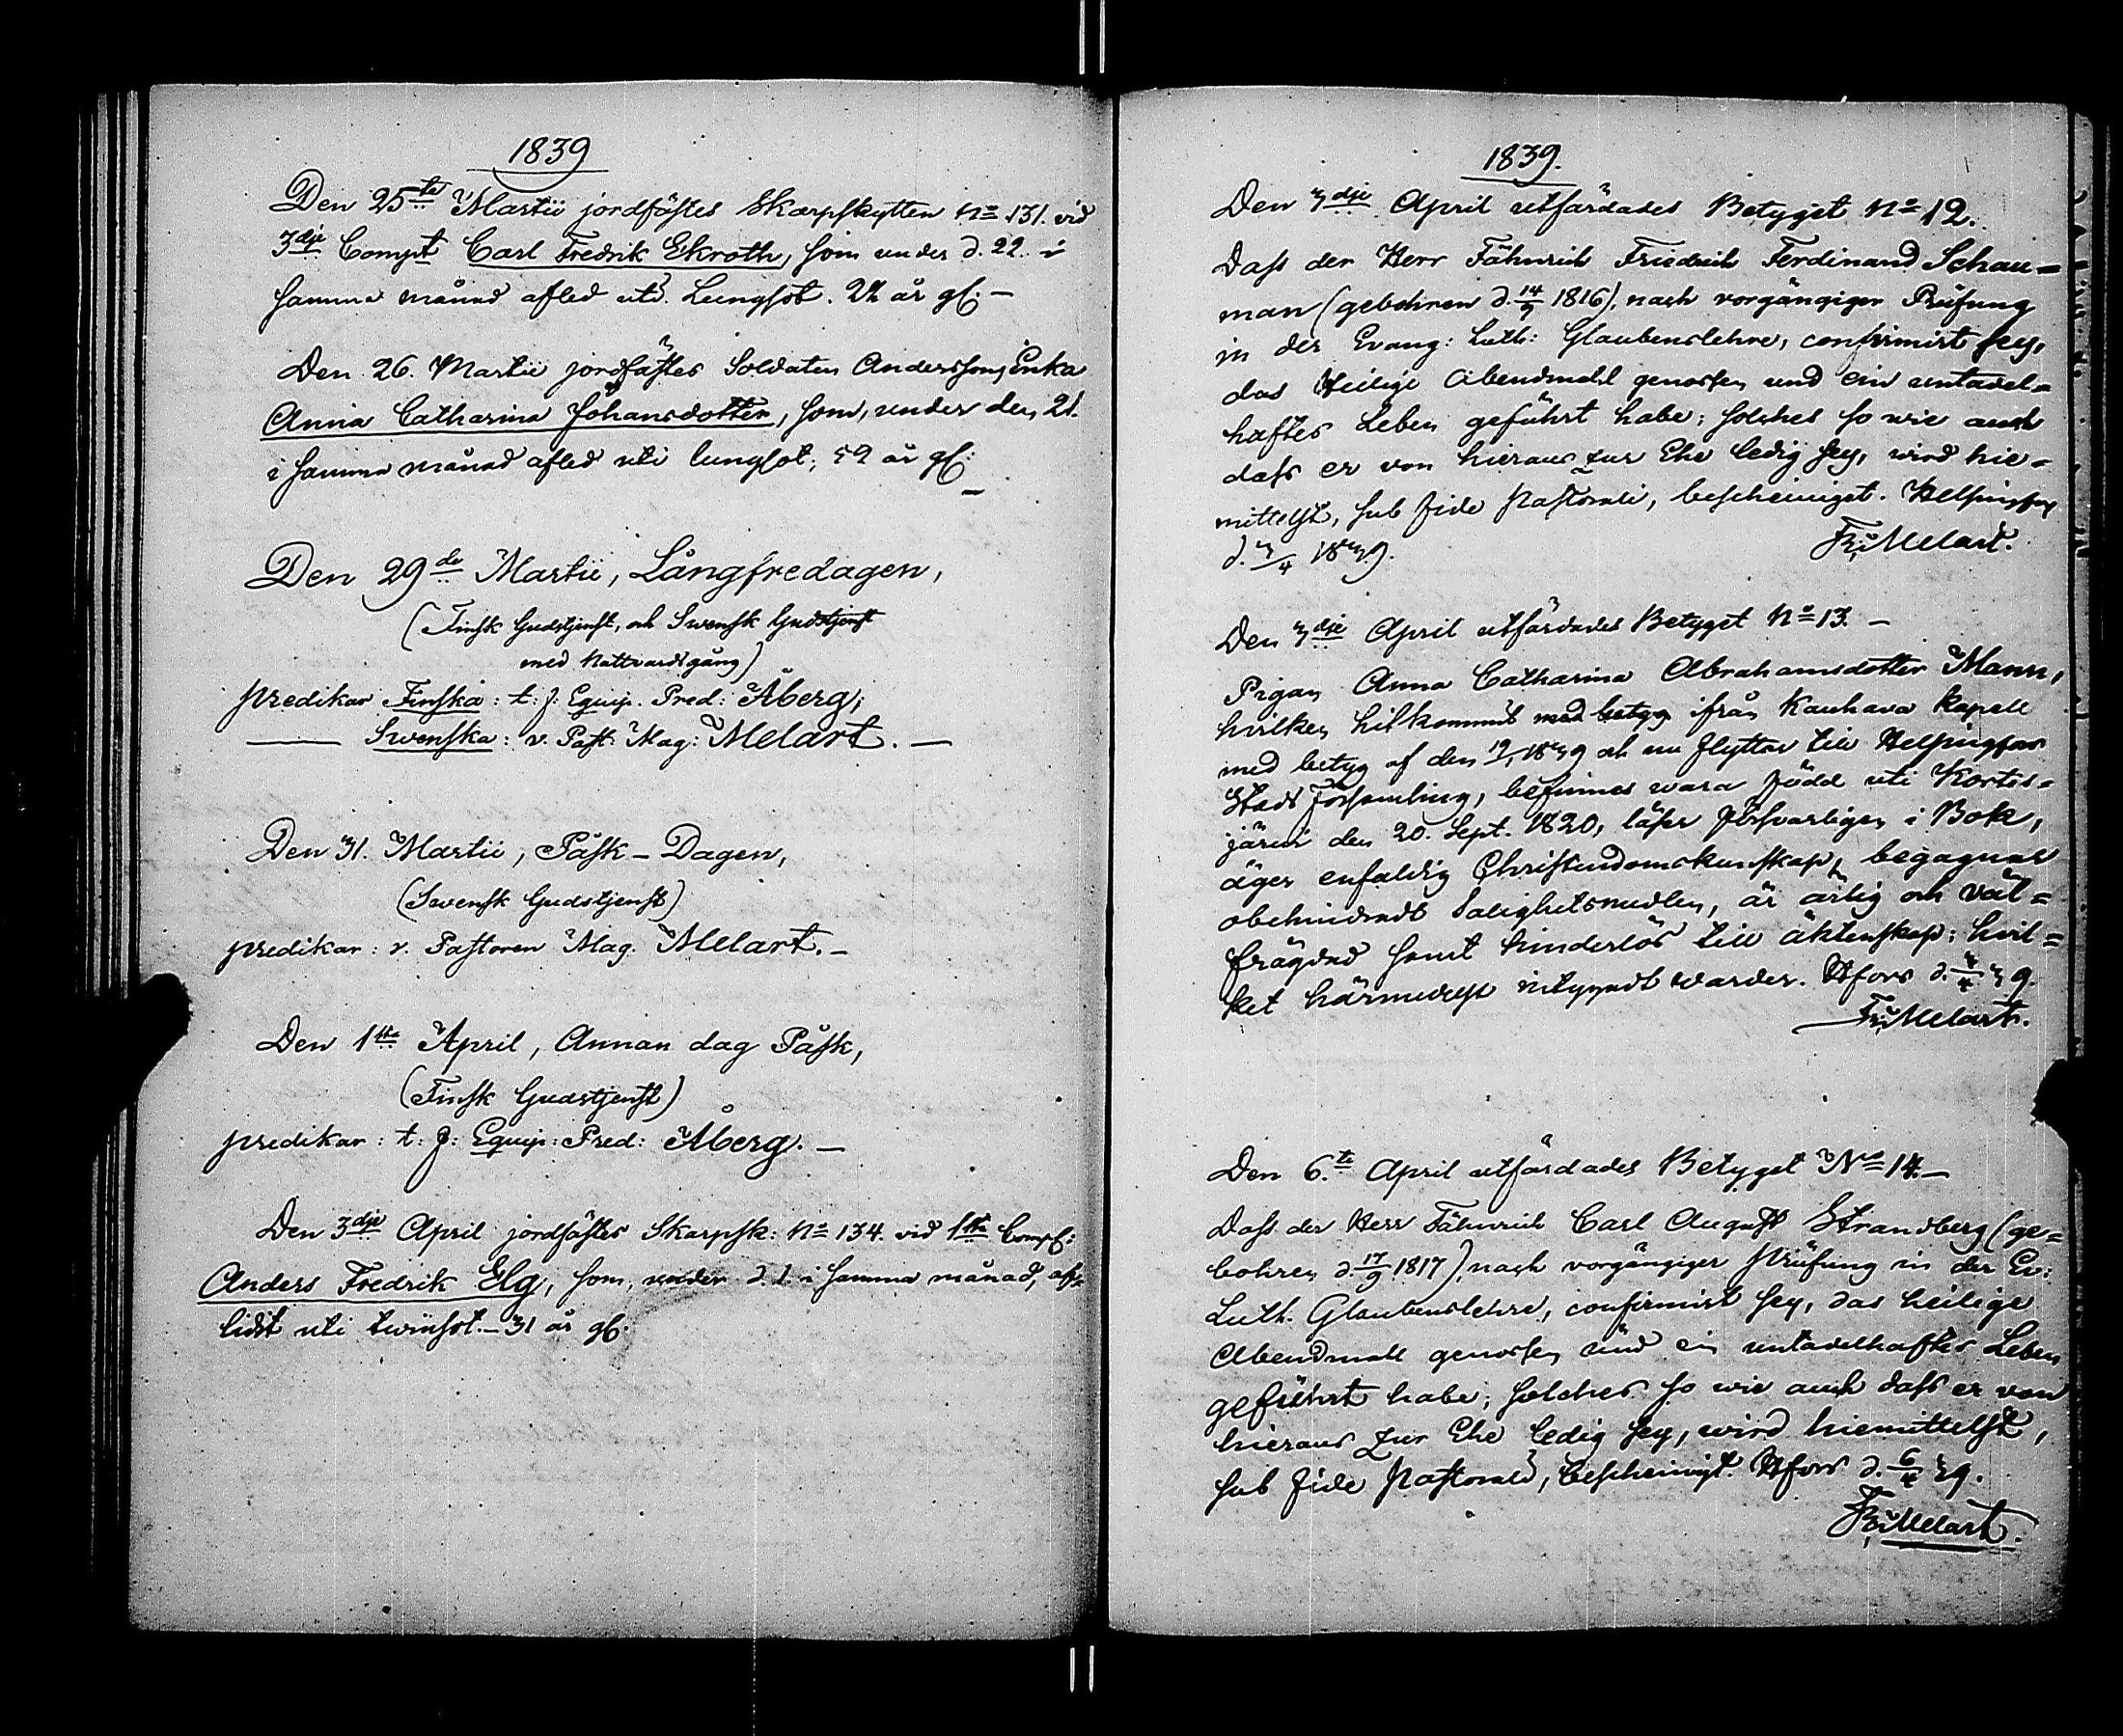 1839
Den 25te Martii jordfästes Skarpskytten No 131. vid
3dje Compt Carl Fredrik Ekroth, som under d. 22. i
samma månad afled uti Lungsot. 24 år gl: –
Den 26. Martii jordfästes Soldaten Anderssons Enka
Anna Catharina Johansdotter, som, under den 21.
i samma månad afled uti lungsot; 59 år gl: –
Den 29de Martii, Långfredagen,
(Finsk Gudstjenst, och Swensk Gudstjenst
med Nattvardsgång)
predikar Finska: t: f: Equip. Pred: Åberg;
—— Swenska: v. Past: Mag: Melart. —
Den 31. Martii, Påsk-Dagen,
(Swensk Gudstjenst)
predikar: v. Pastoren Mag. Melart. –
Den 1sta April, Annan dag Påsk,
(Finsk Gudstjenst)
predikar: t: f: Equip: Pred: Åberg. –
Den 3dje April jordfästes Skarpsk: No 134. vid 1sta Comp:
Anders Fredrik Elg, som, under d. 1. i samma månad, af-
lidit uti twinsot. – 31 år gl.
1839.
Den 3dje April utfärdades Betyget No 12.
Dass der Herr Fähnrich Friedrich Ferdinand Schau=
man (gebohren d. 14/3 1816), nach vorgängiger Prüfung
in der Evang: Luth: Glaubenslehre, confirmirt sey,
das Heilige Abendmahl genossen und ein untadel=
haftes Leben geführt habe; solches so wie auch
dass er von hieraus zur Ehe ledig sey, wird hie=
mittelst, sub fide pastorali, bescheiniget. Helsingfors
d. 3/4 1839. Fr: Melart.
Den 3dje April utfärdades Betyget No 13. –
Pigan Anna Catharina Abrahamsdotter Mann,
hvilken hitkommit med betyg ifrån Kauhava Kapell
med betyg af den 19/1 1839 och nu flyttar till Helsingfors
Stads Församling, befinnes wara född uti Kortes=
järvi den 20. Sept. 1820, läser försvarligen i Bok,
äger enfaldig Christendomskunskap, begagnar
obehindradt Salighetsmedlen, är ärlig och väl=
frägdad samt hinderlös till äktenskap; hvil=
ket härmedelst intygadt warder. Hfors d. 3/4 39.
Fr: Melart.
Den 6.te April utfärdades Betyget No 14. –
Dass der Herr Fähnrich Carl August Strandberg (ge=
bohren d. 17/9 1817), nach vorgängiger Prüfung in der Ev:
Luth. Glaubenslehre, confirmirt sey, das heilige
Abendmall genossen und ein untadelhaftes Leben
geführt habe; solches so wie auch dass er von
hieraus zur Ehe ledig sey, wird hiemittelst,
sub fide pastorali, bescheinigt. Hfors d. 6/4 39.
Fr: Melart.